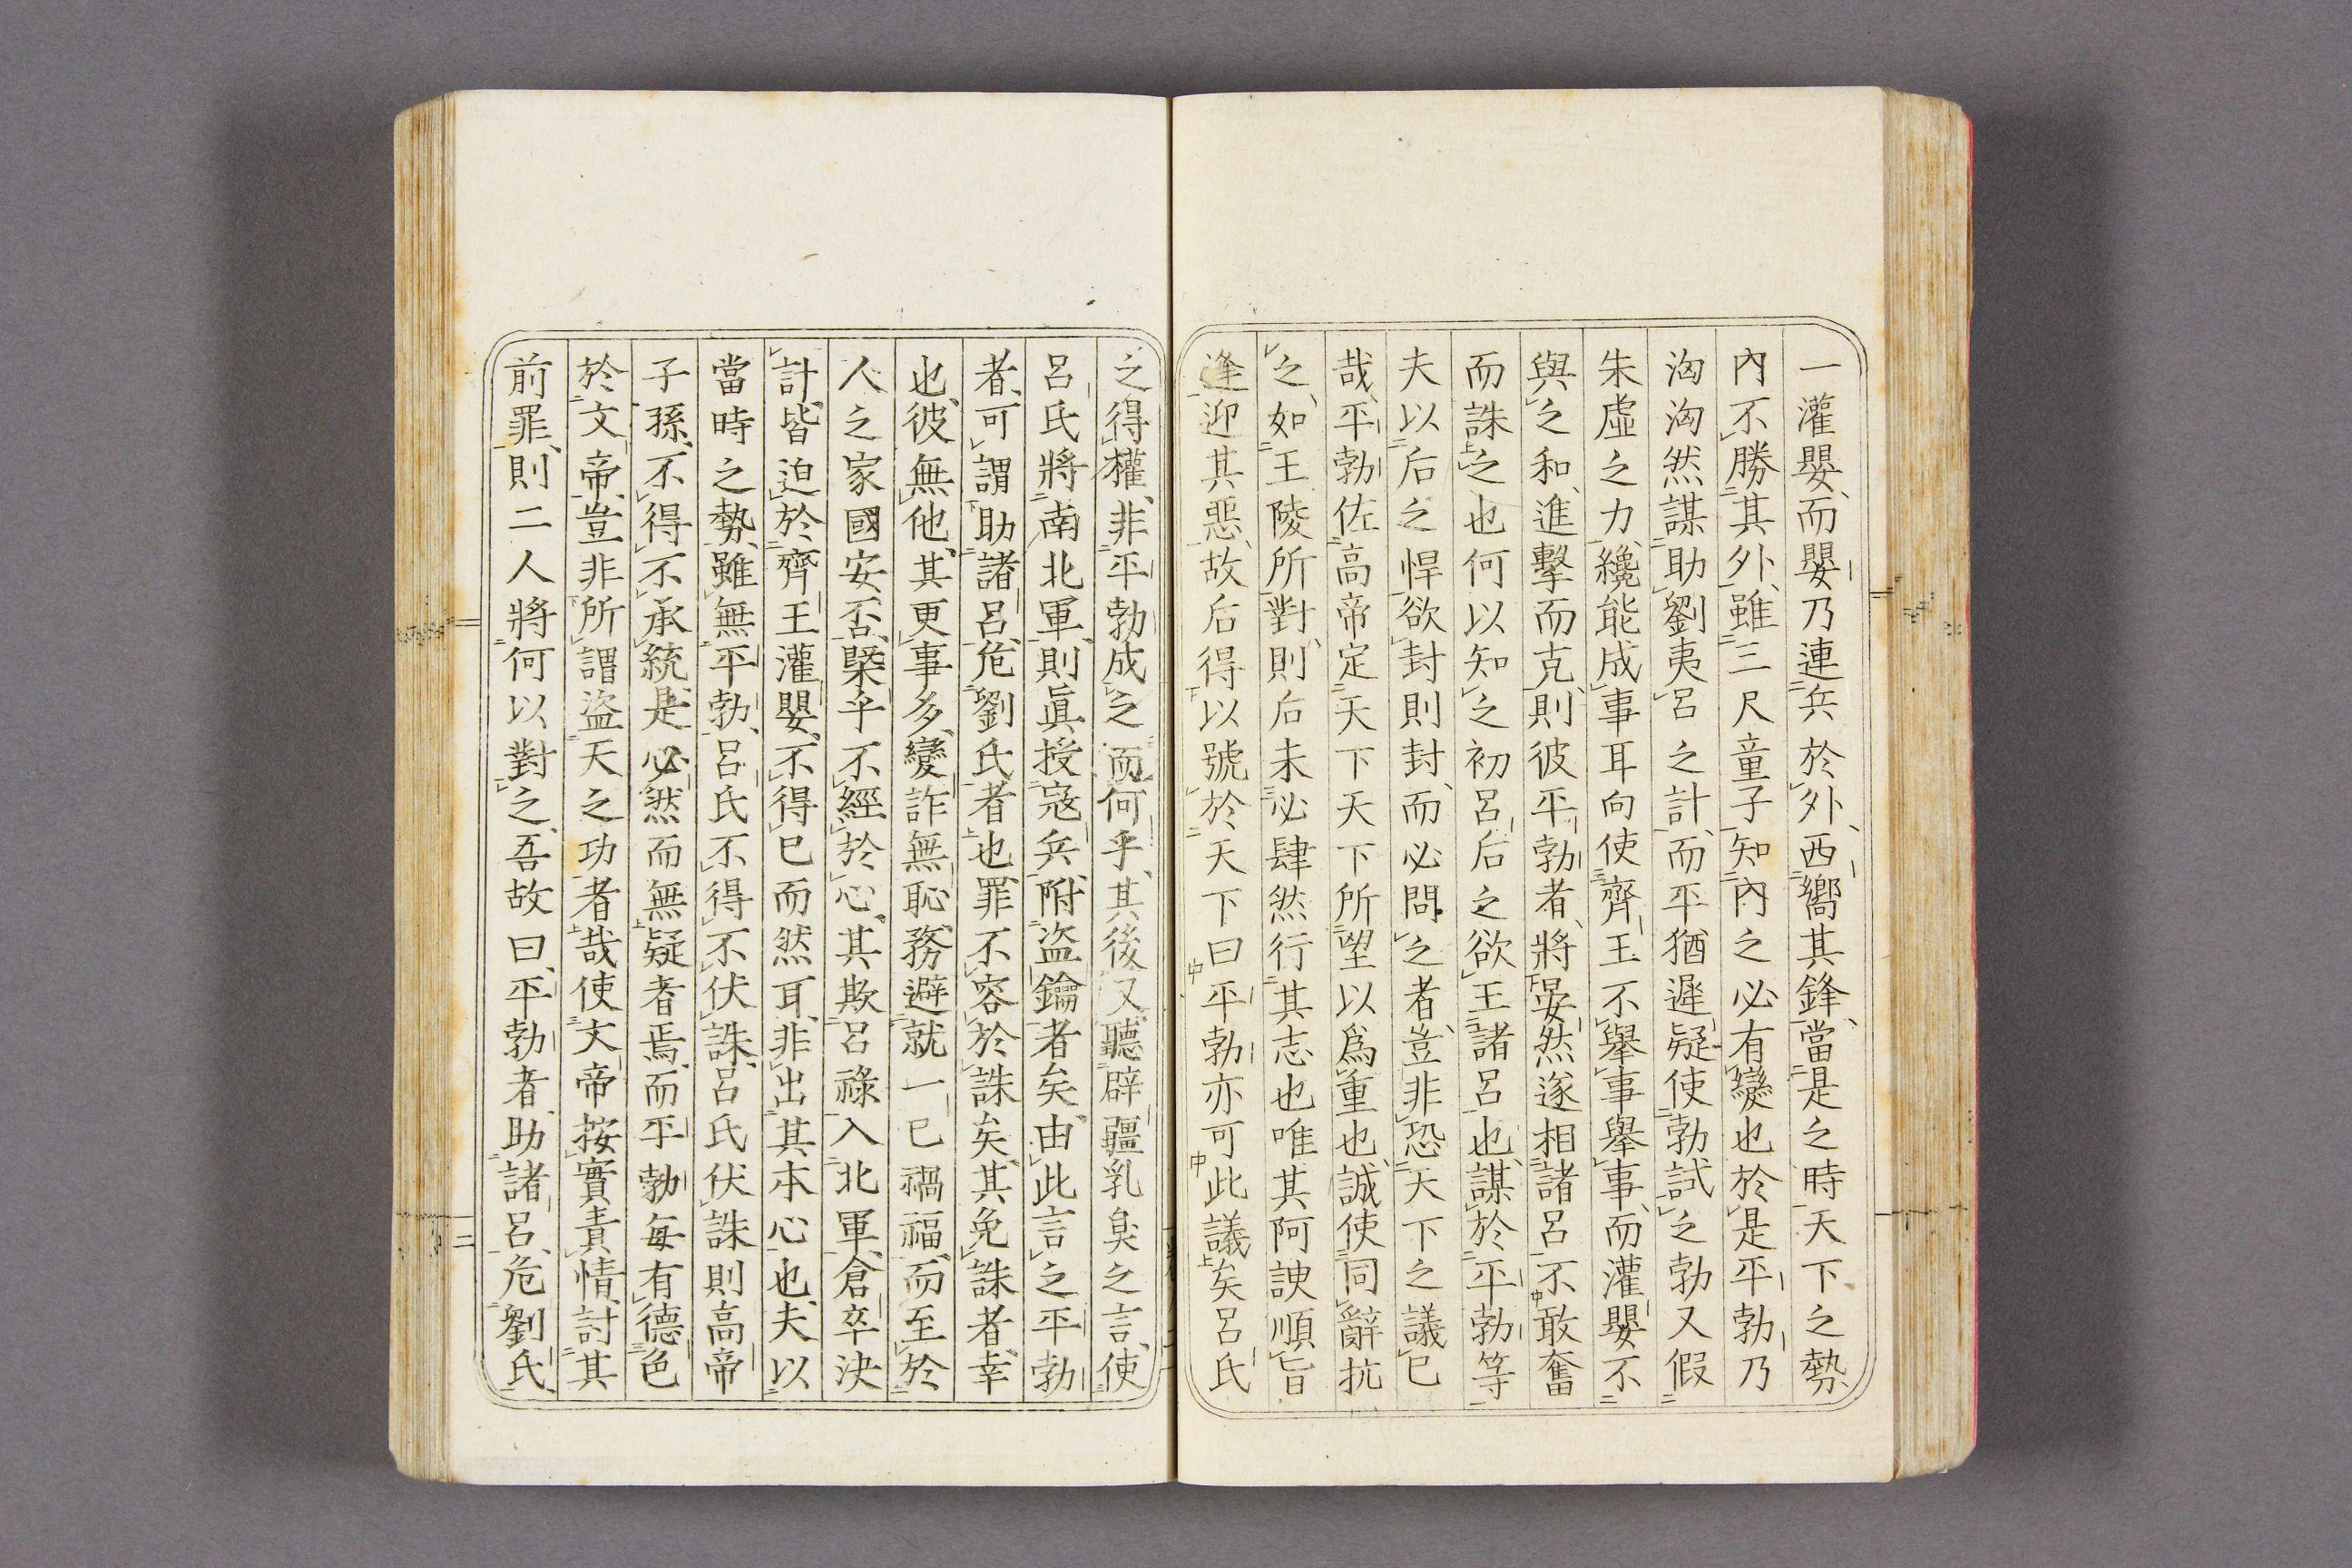 一灌嬰、而嬰乃連兵於外、西嚮其鋒、當是之時天下之勢
內不勝其外、雖三尺童子知內之必有變也於是平勃乃
洶洶然謀助劉夷呂之計、而平猶遲疑使勃試之勃又假
朱虛之力、纔能成事耳向使齊王不擧事擧事、而灌嬰不
與之和、進擊而克、則彼平勃者、將晏然遂相諸呂不敢奮
而誅之也何以知之初呂后之欲王諸呂也、謀於平勃等
夫以后之悍欲封則封、而必問之者、豈非恐天下之議已
哉、平勃佐高帝定天下天下所望以爲重也、誠使同辭抗
之、如王陵所對、則后未必肆然行其志也唯其阿諛順旨
逢迎其惡、故后得以號於天下曰平勃亦可此議矣呂氏
之得權、非平勃成之而何乎、其後又聽辟疆乳臭之言、使
呂氏將南北軍、則眞授寇兵、附盜鑰者矣、由此言之平勃
者、可謂助諸呂、危劉氏者也、罪不容於誅矣、其免誅者、幸
也、彼無他、其更事多、變詐無恥、務避就一已禍福、而至於
人之家國安否、槩乎不經於心、其欺呂祿入北軍、倉卒決
計、皆迫於齊王灌嬰、不得已而然耳、非出其本心也、夫以
當時之勢、雖無平勃、呂氏不得不伏誅、呂氏伏誅則高帝
子孫、不得不承統是必然而無疑者焉、而平勃每有德色
於文帝、豈非所謂盜天之功者哉使文帝按實責情、討其
前罪、則二人將何以對之、吾故曰、平勃者、助諸呂、危劉氏、